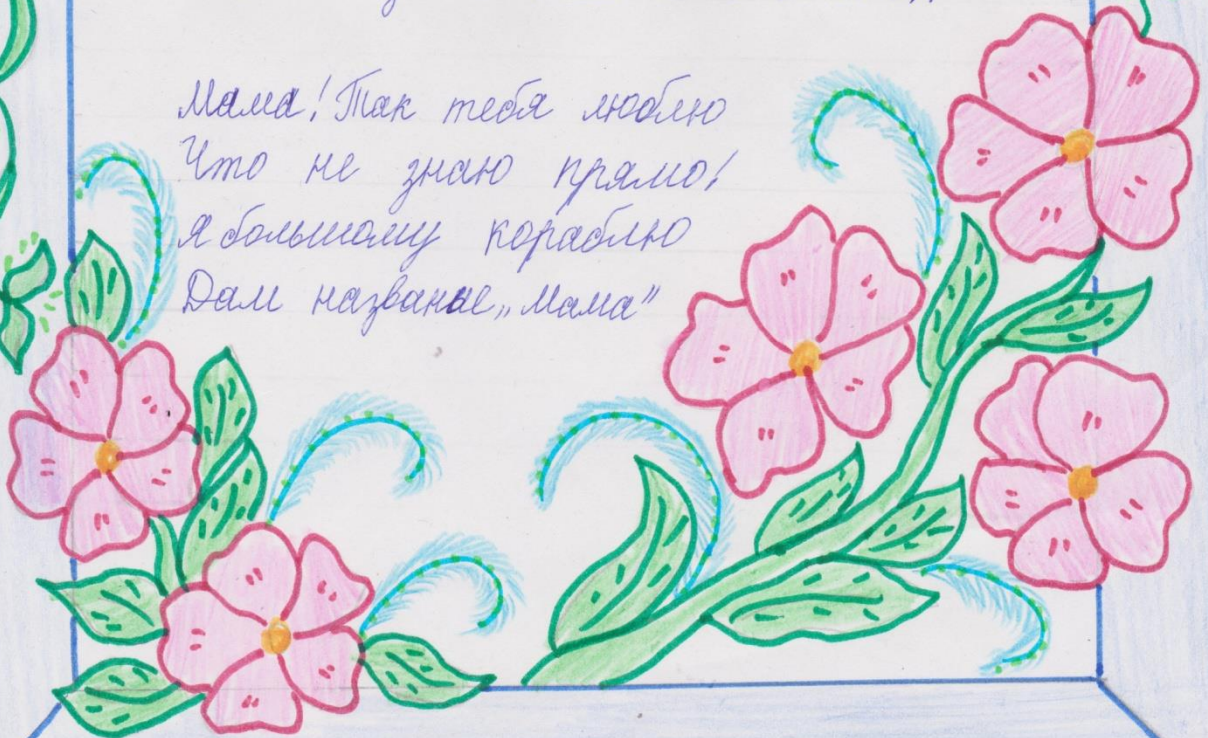 Мама! Так тебя люблю
Что не знаю прямо!
Я большому кораблю
Дам названье „Мама"